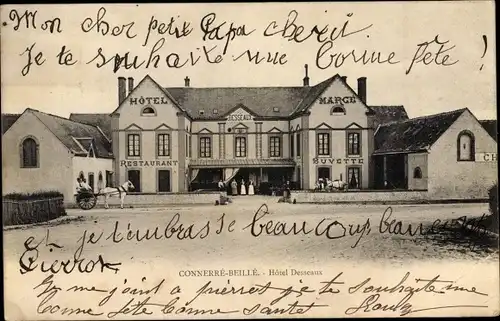 Mon cher petit Papa cherit
Je te souhaite une bonne fête !
HÔTEL
DESSEAUX
MARCÉ
RESTAURANT
BUVETTE
CH
et je t'embras se beaucoup beaucoup
Pierrot
CONNERRÉ-BEILLÉ. - Hôtel Desseaux
me joint à pierrot je te souhaite
bonne fête bonne santé